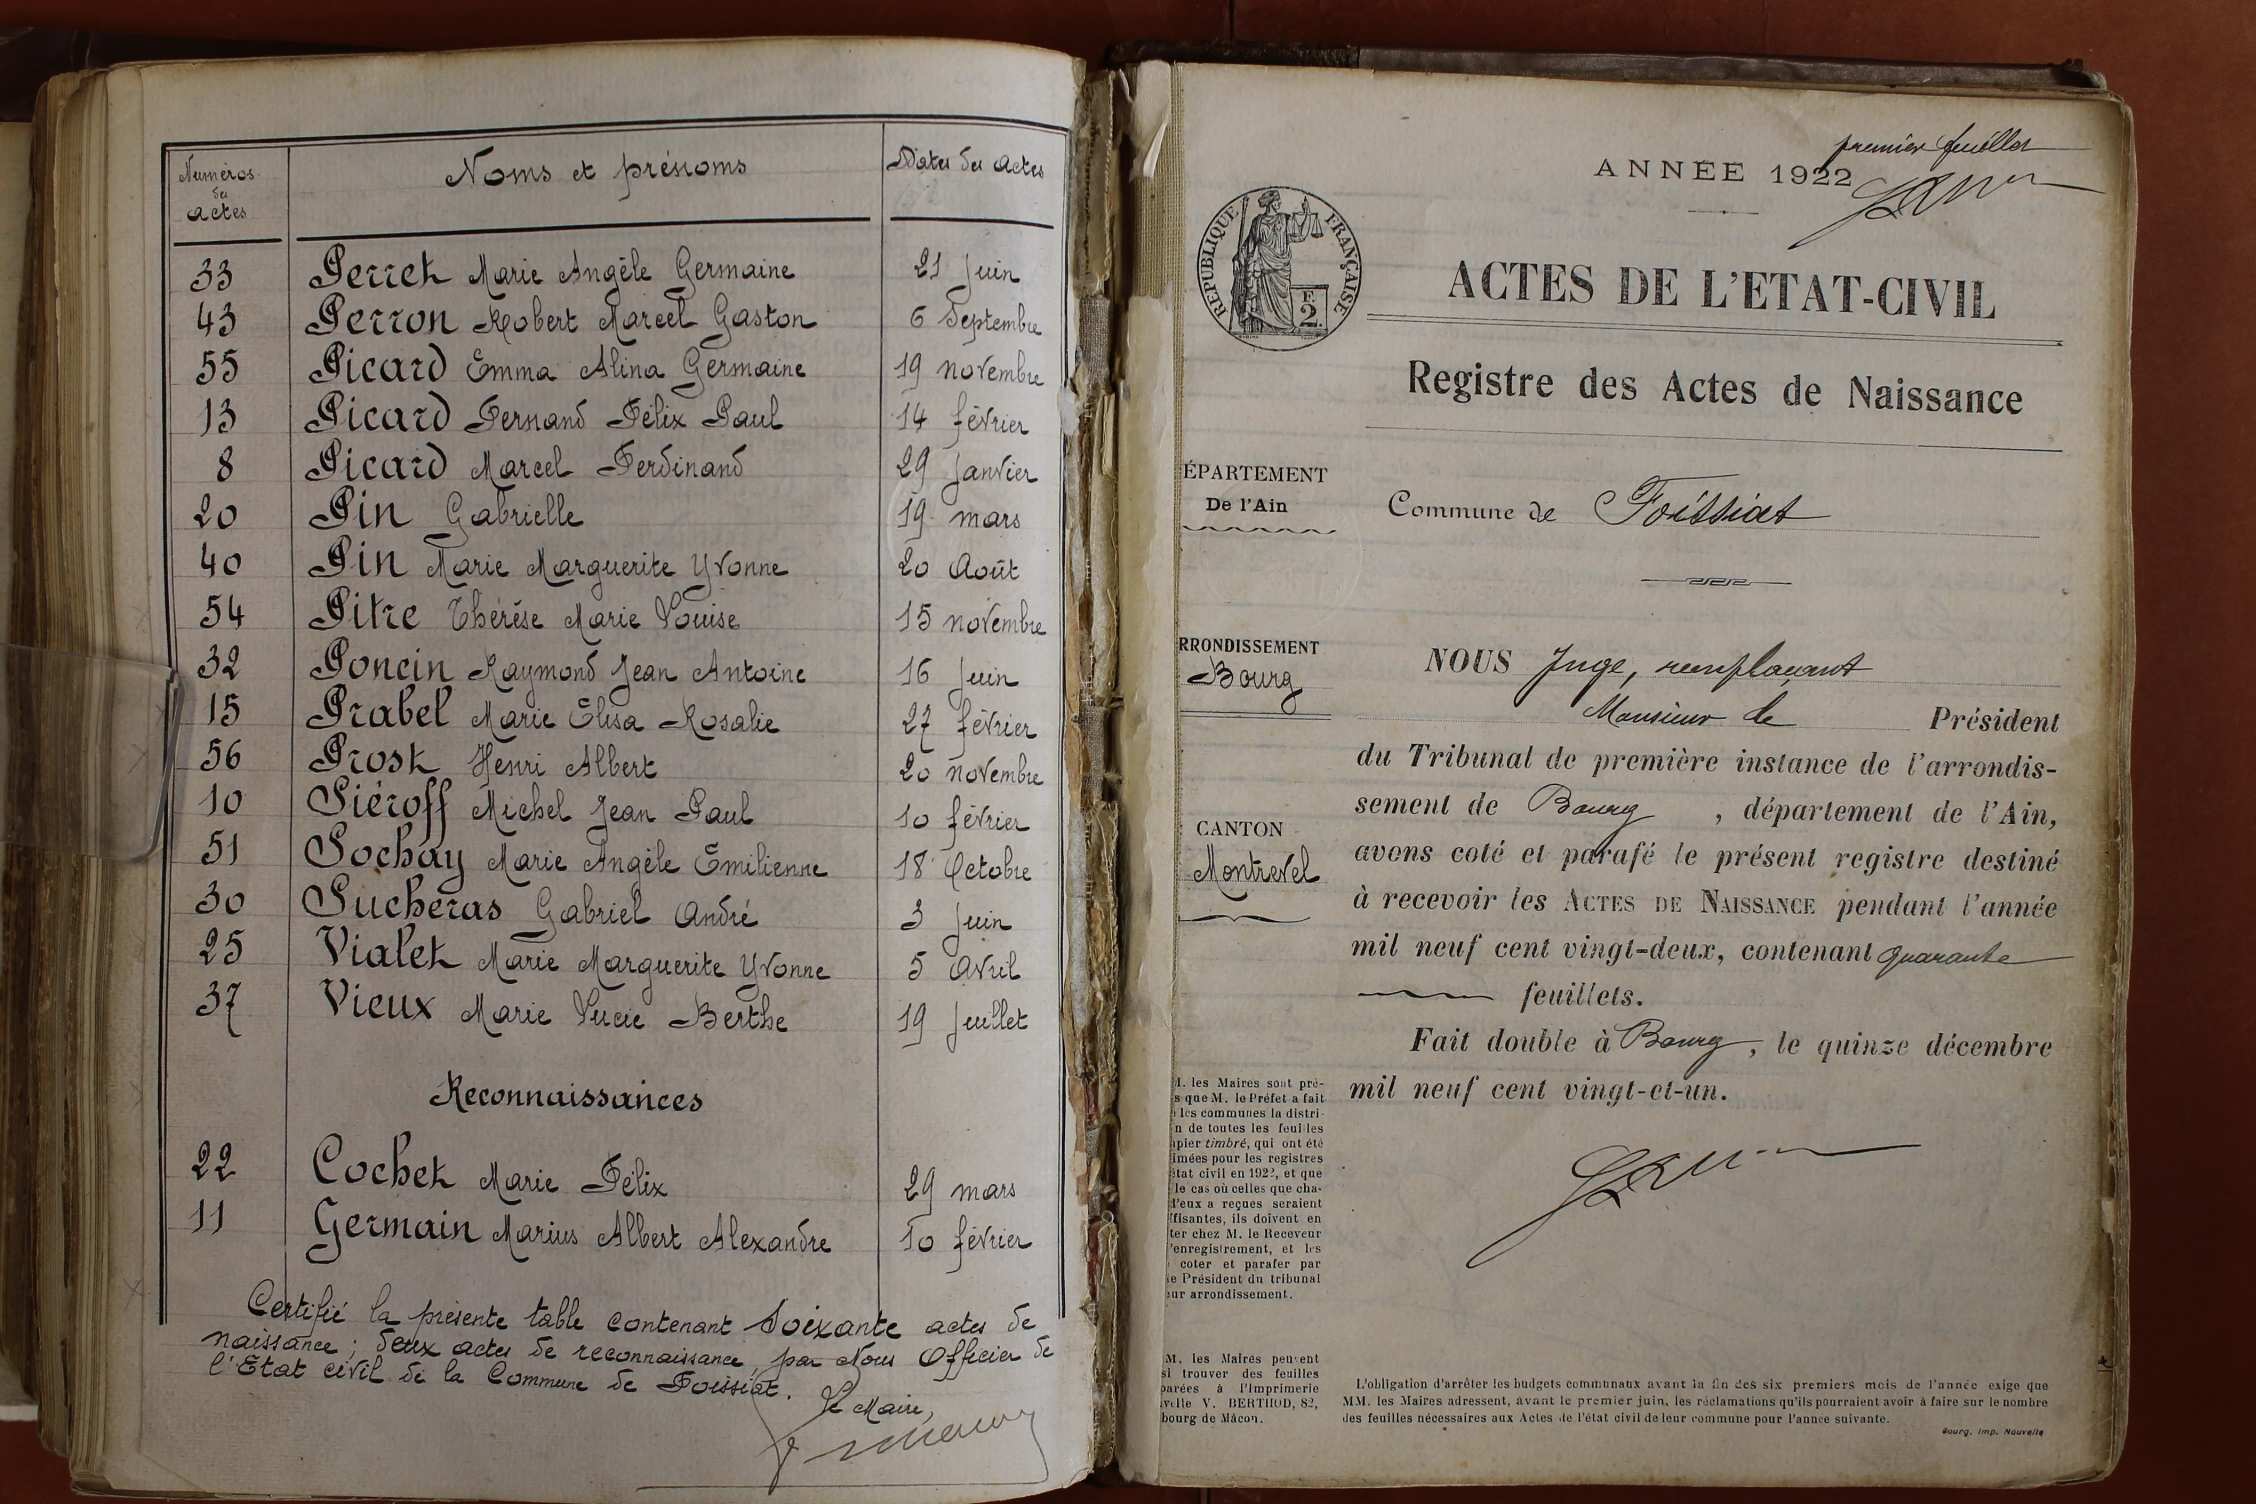 Numéros des actes
Noms et prénoms
Dates des actes
33 Perret Marie Angèle Germaine 21 Juin
43 Perron Robert Marcel Gaston 6 Septembre
55 Picard Emma Alina Germaine 19 novembre
13 Picard Fernand Félix Paul 14 février
8 Picard Marcel Ferdinand 29 Janvier
20 Pin Gabrielle 19 mars
40 Pin Marie Marguerite Yvonne 20 Août
54 Pitre Thérèse Marie Louise 15 novembre
32 Poncin Raymond Jean Antoine 16 Juin
15 Prabel Marie Elisa Rosalie 27 février
56 Prost Henri Albert 20 novembre
10 Siéroff Michel Jean Paul 10 février
51 Sochay Marie Angèle Emilienne 18 Octobre
30 Sucheras Gabriel André 3 Juin
25 Vialet Marie Marguerite Yvonne 5 Avril
37 Vieux Marie Lucie Berthe 19 Juillet
Reconnaissances
22 Cochet Marie Félix 29 mars
11 Germain Marius Albert Alexandre 10 février
Certifié la présente table contenant soixante actes de
naissance ; deux actes de reconnaissance, par Nous Officier de
l'Etat civil de la Commune de Foissiat.
Le Maire,
premier feuillet
ANNÉE 1922
RÉPUBLIQUE FRANÇAISE
2
ACTES DE L'ETAT-CIVIL
Registre des Actes de Naissance
ÉPARTEMENT
De l'Ain
Commune de Foissiat
RRONDISSEMENT
Bourg
CANTON
Montrevel
NOUS Juge, remplaçant
Monsieur le Président
du Tribunal de première instance de l'arrondis-
sement de Bourg , département de l'Ain,
avons coté et parafé le présent registre destiné
à recevoir les ACTES DE NAISSANCE pendant l'année
mil neuf cent vingt-deux, contenant quarante
feuillets.
Fait double à Bourg, le quinze décembre
mil neuf cent vingt-et-un.
M. les Maires sont pré-
s que M. le Préfet a fait
les communes la distri-
n de toutes les feuilles
apier timbré, qui ont été
imées pour les registres
état civil en 1922, et que
le cas où celles que cha-
d'eux a reçues seraient
ffisantes, ils doivent en
ter chez M. le Receveur
l'enregistrement, et les
coter et parafer par
le Président du tribunal
eur arrondissement.
M. les Maires peuvent
si trouver des feuilles
parées à l'Imprimerie
velle V. BERTHOD, 82,
bourg de Mâcon.
L'obligation d'arrêter les budgets communaux avant la fin des six premiers mois de l'année exige que
MM. les Maires adressent, avant le premier juin, les réclamations qu'ils pourraient avoir à faire sur le nombre
des feuilles nécessaires aux Actes de l'état civil de leur commune pour l'année suivante.
Bourg. Imp. Nouvelle